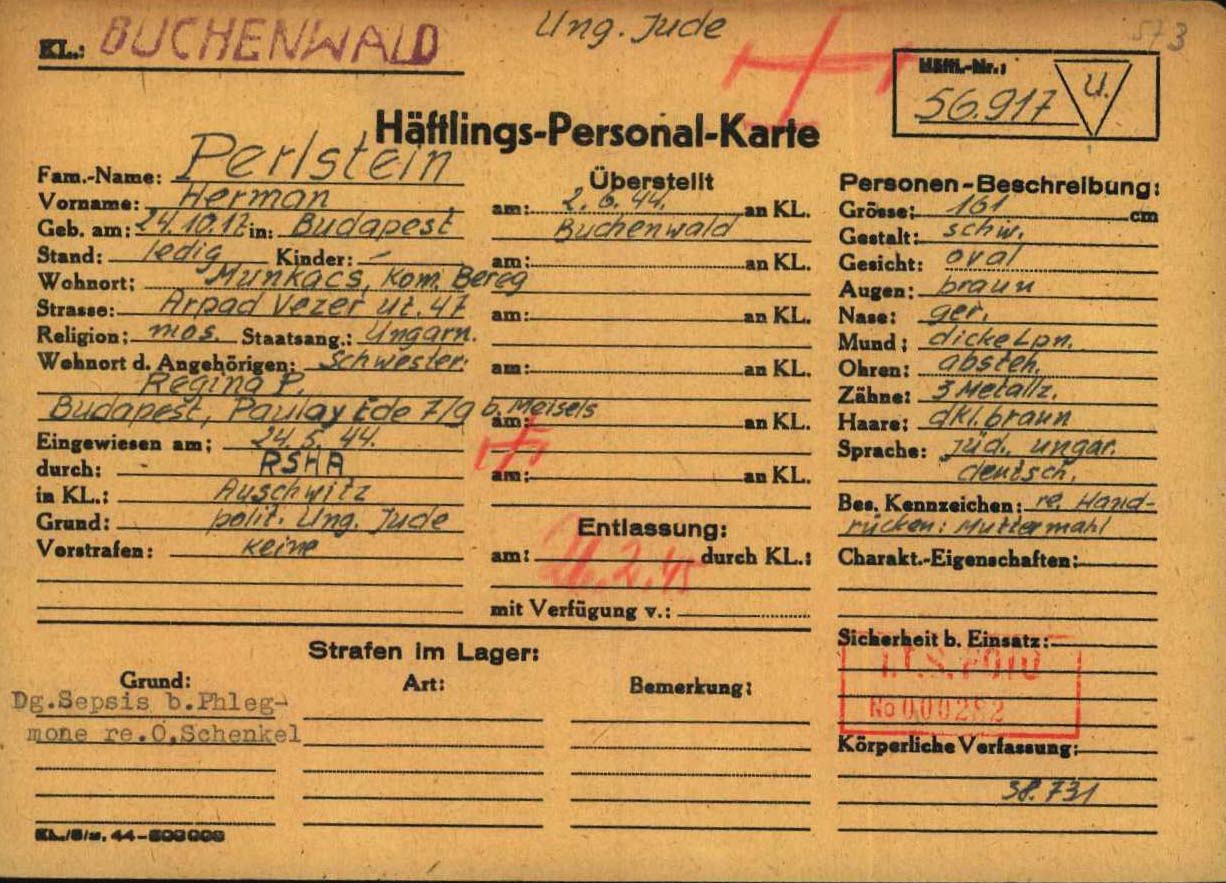 KL.: BUCHENWALD
Ung. Jude
573
Häftl.-Nr.:
56.917
U.
Häftlings-Personal-Karte
Fam.-Name: Perlstein
Vorname: Herman
Geb. am: 24.10.17 in: Budapest
Stand: ledig Kinder: –
Wohnort: Munkacs, Kom. Bereg
Strasse: Arpad Vezer ut. 47
Religion: mos. Staatsang.: Ungarn.
Wohnort d. Angehörigen: Schwester:
Regina P.
Budapest, Paulay Ede 7/9 b. Meisels
Eingewiesen am: 24.5.44.
durch: RSHA
in KL.: Auschwitz
Grund: polit. Ung. Jude
Vorstrafen: keine
Überstellt
am: 2.6.44. an KL.
Buchenwald
am: an KL.
am: an KL.
am: an KL.
am: an KL.
am: an KL.
Entlassung:
am: durch KL.:
26.2.45
mit Verfügung v.:
Personen-Beschreibung:
Grösse: 161 cm
Gestalt: schw.
Gesicht: oval
Augen: braun
Nase: ger.
Mund: dicke Lpn.
Ohren: absteh.
Zähne: 3 Metallz.
Haare: dkl.braun
Sprache: jüd. ungar.
deutsch.
Bes. Kennzeichen: re. Hand-
rücken: Muttermahl
Charakt.-Eigenschaften:
Sicherheit b. Einsatz:
I.T.S. FOTO
No 000282
Körperliche Verfassung:
38.731
Strafen im Lager:
Grund: Art: Bemerkung:
Dg.Sepsis b.Phleg-
mone re.O.Schenkel
KL./5/w. 44-500000